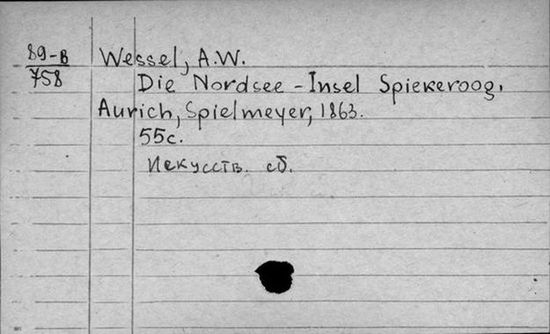 89-В Wessel, A.W.
758 Die Nordsee-Insel Spiekeroog.
Aurich, Spielmeyer, 1863.
55с.
Искусств. сб.